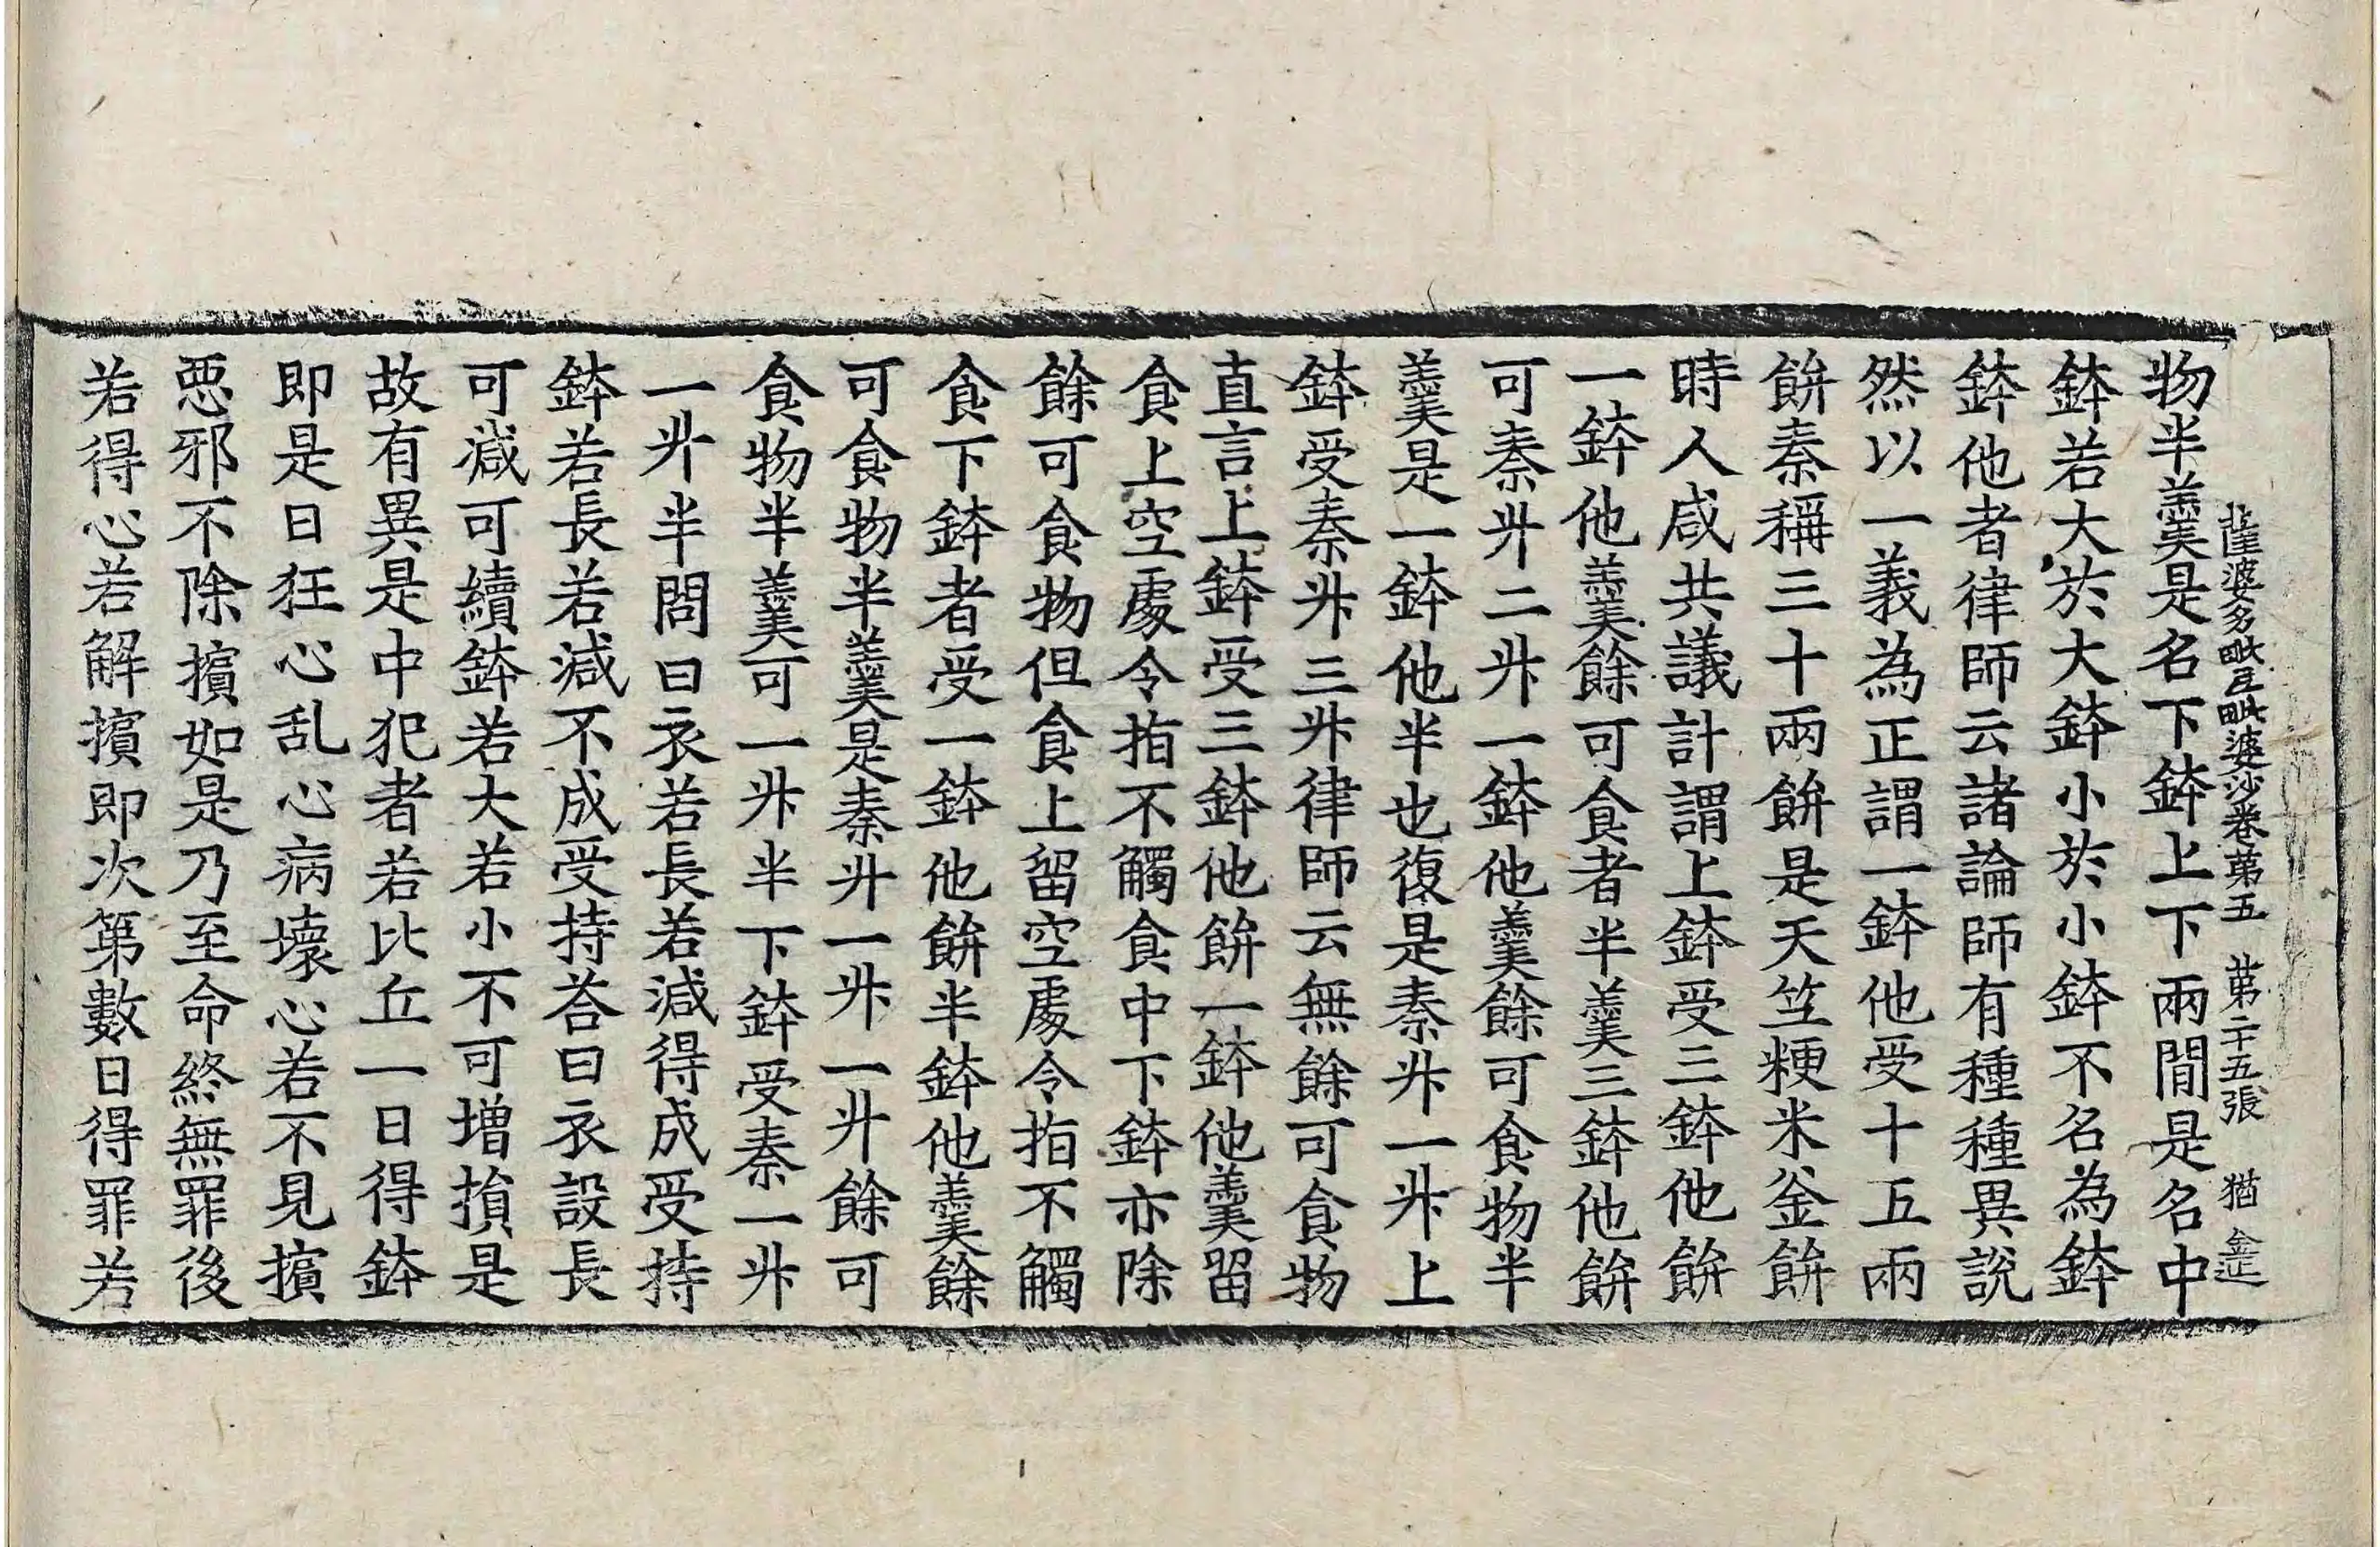 薩婆多毗尼毗婆沙卷第五 第二十五張 猶
物半羹是名下鉢上下兩閒是名中
鉢若大於大鉢小於小鉢不名為鉢
鉢他者律師云諸論師有種種異說
然以一義為正謂一鉢他受十五兩
餅秦稱三十兩餅是天竺粳米釜餅
時人咸共議計謂上鉢受三鉢他餅
一鉢他羹餘可食者半羹三鉢他餅
可秦升二升一鉢他羹餘可食物半
羹是一鉢他半也復是秦升一升上
鉢受秦升三升律師云無餘可食物
直言上鉢受三鉢他餅一鉢他羹留
食上空處令指不觸食中下鉢亦除
餘可食物但食上留空處令指不觸
食下鉢者受一鉢他餅半鉢他羹餘
可食物半羹是秦升一升一升餘可
食物半羹可一升半下鉢受秦一升
一升半問曰衣若長若減得成受持
鉢若長若減不成受持荅曰衣設長
可減可續鉢若大若小不可增損是
故有異是中犯者若比丘一日得鉢
即是日狂心乱心病壞心若不見擯
惡邪不除擯如是乃至命終無罪後
若得心若解擯即次第數日得罪若